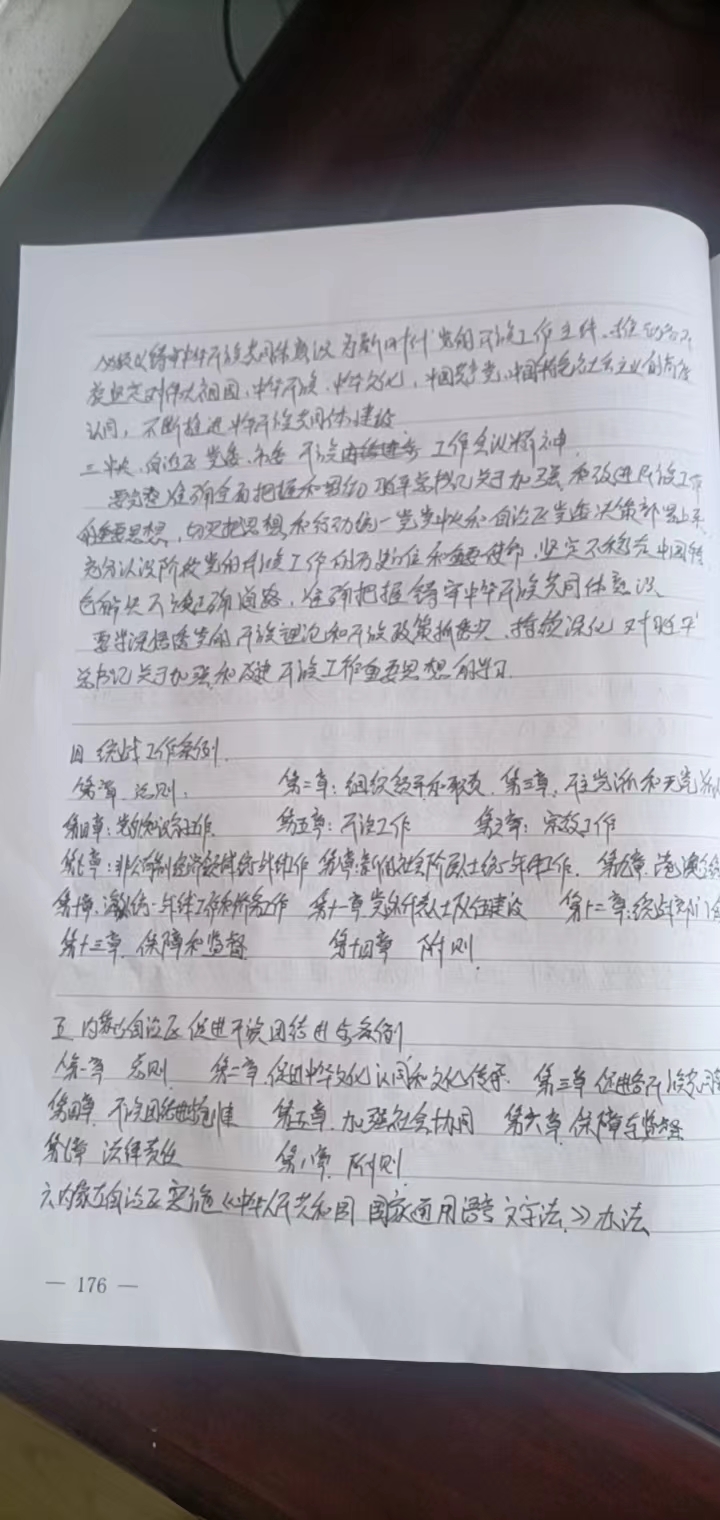 必须以铸牢中华民族共同体意识为新时代党的民族工作主线、推动各民
族坚定对伟大祖国,中华民族、中华文化,中国共产党,中国特色社会主义的高度
认同,不断推进中华民族共同体建设
三中央、自治区党委、市委 民族 工作会议精神.
要完整准确全面把握和贯彻习近平总书记关于加强和改进民族工作
的重要思想,切实把思想和行动统一党中央和自治区党委决策部署上来
充分认识 党的民族工作的历史方位和重要使命,坚定不移 中国特
色解决民族正确道路,准确把握铸牢中华民族共同体意识
要 党的民族理论和民族政策 持续深化对习近平
总书记关于加强和改进民族工作重要思想的学习.
四 统战工作条例.
第一章 总则: 第二章:组织领导和职责 第三章,民主党派和无党派
第四章:党外知识分子工作. 第五章:民族工作 第六章:宗教工作
第七章:非公有制经济领域统一战线工作 第八章:新的社会阶层人士统一战线工作. 第九章、港澳台
第十章、 统一战线工作和侨务工作 第十一章党外代表人士队伍建设 第十二章:统战部门
第十三章 保障和监督 第十四章 附则.
五 内蒙古自治区促进民族团结进步条例
第一章 总则 第二章.促进中华文化认同和文化传承. 第三章 促进各民族
第四章.民族团结进步创建 第五章.加强社会协同 第六章.保障与监督
第七章 法律责任 第八章.附则.
六内蒙古自治区实施《中华人民共和国 国家通用语言文字法.》办法
— 176 —